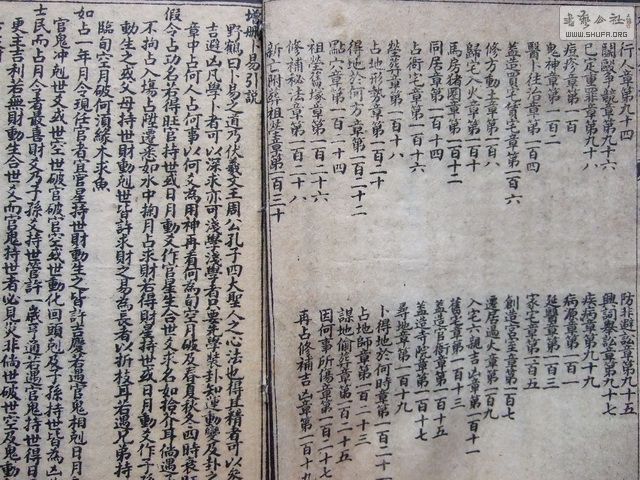 公益 書法公社
WWW.SHUFA.ORG
行人章第九十四
防非避訟章第九十五
鬪毆爭競章第九十六
興詞舉訟章第九十七
已定重罪章第九十八
疾病章第九十九
痘疹章第一百
病源章第一百一
鬼神章第一百二
延醫章第一百三
醫卜往治章第一百四
家宅章第一百五
蓋造買賣宅章第一百六
創造宮室章第一百七
修方動土章第一百八
遷居過火章第一百九
歸宅入火章第一百十
入宅六親吉凶章第一百十一
馬房猪圈章第一百十二
舊宅章第一百十三
同居章第一百十四
蓋造官衙章第一百十五
占衙宇章第一百十六
蓋造寺院章第一百十七
塋葬章第一百十八
尋地章第一百十九
占地形勢章第一百二十
卜得地於何時章第一百二十一
得地於何方章第一百二十二
占地師章第一百二十三
點穴章第一百二十四
謀地偷葬章第一百二十五
祖塋章第一百二十六
因何事所傷章第一百二十七
修補秘法章第一百二十八
再占修補吉凶章第一百二十九
新亡附葬祖塋章第一百三十
增刪卜易引説
野鶴曰卜易之道乃伏羲文王周公孔子四大聖人之心法也得其精者可以參
吉避凶凡學卜者可以深求亦可淺學淺學者只要學裝卦知連動變及卦之
章中占何人占何事以何爻為用神再看何為旬空月破及春夏秋冬四時衰旺
假令占功名若得旺官持世或日月動爻作官星生合世爻求名如拾芥耳倘遇子
不拘占入塲占陞遷悉如水中掬月占求財若得財星持世或日月動爻作子孫
動生之或父母持世財動剋世皆許求財之易為長者以折枝耳若遇兄弟持
臨旬空月破何須緣木求魚
如占一年月令現任官者其官星持世財動生之皆許吉慶若遇官鬼相剋日月
官鬼冲剋世爻或世空世破官破官空或世動化回頭剋及子孫持世皆為凶
士民而占月令者最喜財爻乃子孫爻持世管許一歲亨通若遇官鬼持世得日
更主吉利若無財動生合世爻而官鬼持世者必見災非倘世破世空及鬼動